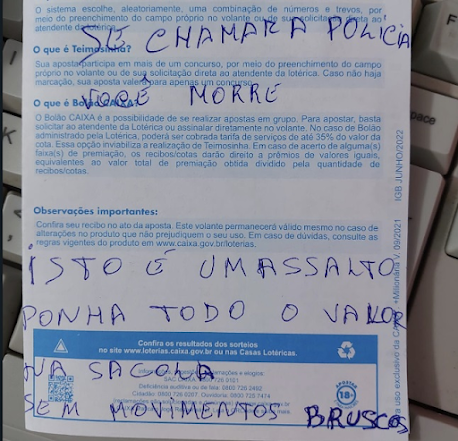 O sistema escolhe, aleatoriamente, uma combinação de números e trevos, por
meio do preenchimento do campo próprio no volante ou de sua solicitação direta ao
atendente da
SE CHAMAR A POLICIA
O que é Teimosinha?
Sua aposta participa em mais de um concurso, por meio do preenchimento do campo
próprio no volante ou de sua solicitação direta ao atendente da lotérica. Caso não haja
marcação, sua aposta valerá para apenas um concurso.
VOCÊ MORRE
O que é Bolão CAIXA?
O Bolão CAIXA é a possibilidade de se realizar apostas em grupo. Para apostar, basta
solicitar ao atendente da Lotérica ou assinalar diretamente no volante. No caso de Bolão
administrado pela Lotérica, poderá ser cobrada tarifa de serviços de até 35% do valor da
cota. Essa opção inviabiliza a realização de Teimosinha. Em caso de acerto de alguma(s)
faixa(s) de premiação, os recibos/cotas darão direito a prêmios de valores iguais,
equivalentes ao valor total de premiação obtida dividido pela quantidade de
recibos/cotas.
Observações importantes:
Confira seu recibo no ato da aposta. Este volante permanecerá válido mesmo no caso de
alterações no produto que não prejudiquem o seu uso. Em caso de dúvidas, consulte as
regras vigentes do produto em www.caixa.gov.br/loterias.
ISTO É UM ASSALTO
PONHA TODO O VALOR
Confira os resultados dos sorteios
no site www.loterias.caixa.gov.br ou nas Casas Lotéricas.
NA SACOLA
SEM MOVIMENTOS BRUSCOS
18+
+Milionária V. 09/2021 IGB JUNHO/2022